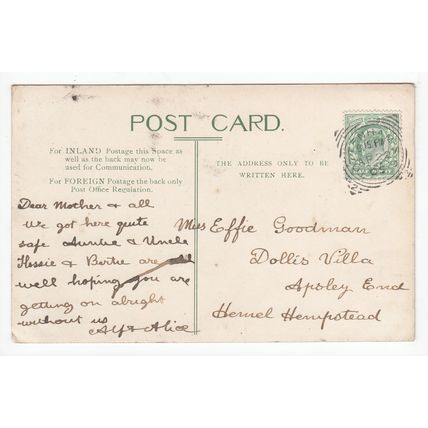 POST CARD.
For INLAND Postage this Space as
well as the back may now be
used for Communication.
For FOREIGN Postage the back only
Post Office Regulation.
THE ADDRESS ONLY TO BE
WRITTEN HERE.
Dear Mother & all
We got here quite
safe Auntie & Uncle
Flossie & Bertie are all
well hoping you are
getting on alright
without us
Alf & Alice
Miss Effie Goodman
Dollis Villa
Apsley End
Hemel Hempstead